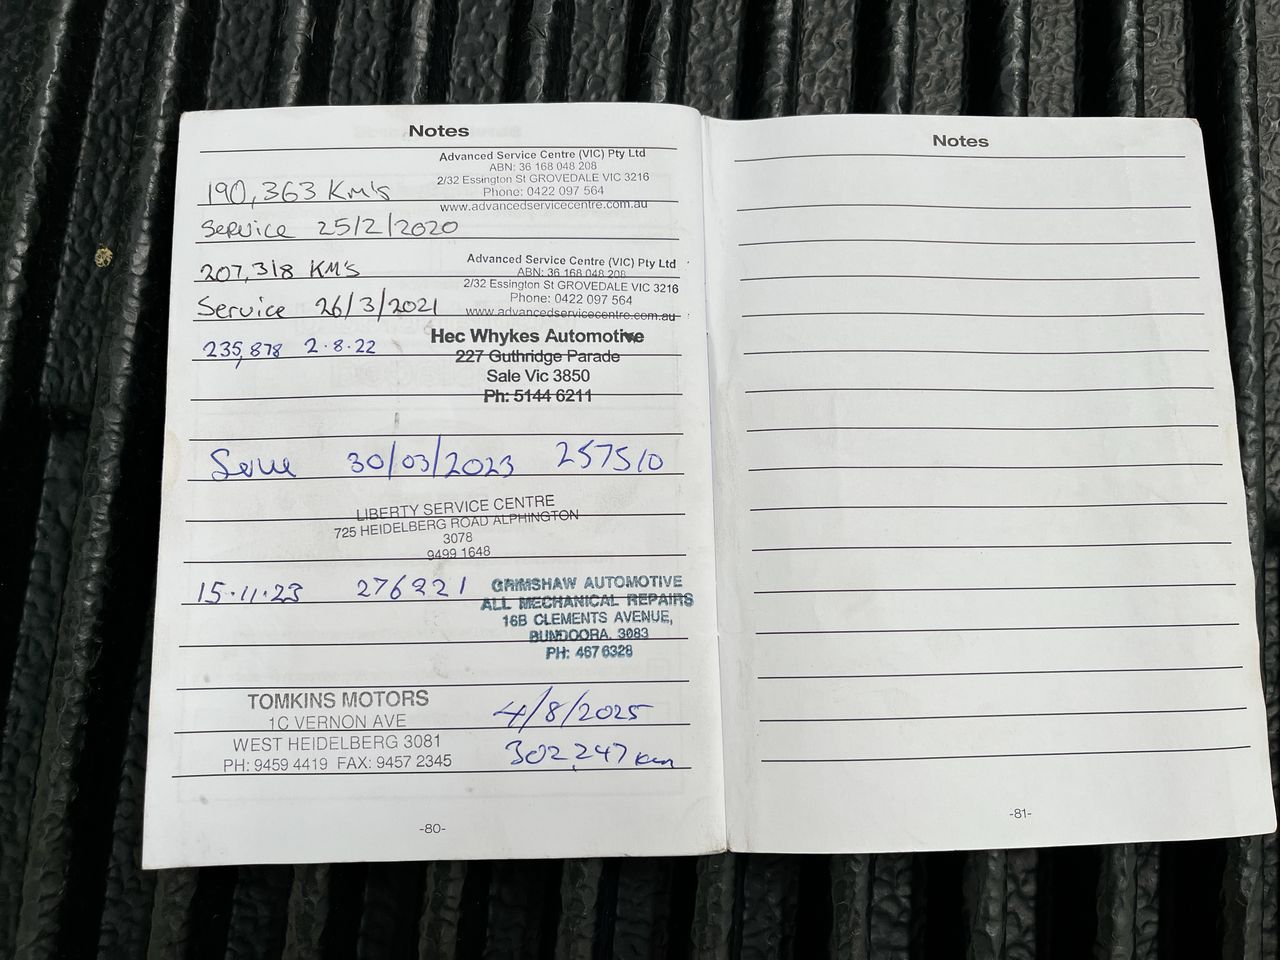 Notes
Advanced Service Centre (VIC) Pty Ltd
ABN: 36 168 048 208
190,363 Km's
2/32 Essington St GROVEDALE VIC 3216
Phone: 0422 097 564
www.advancedservicecentre.com.au
Service 25/2/2020
Advanced Service Centre (VIC) Pty Ltd
207,318 KM's
ABN: 36 168 048 208
2/32 Essington St GROVEDALE VIC 3216
Phone: 0422 097 564
Service 26/3/2021
www.advancedservicecentre.com.au
Hec Whykes Automotive
235,878 2.8.22
227 Guthridge Parade
Sale Vic 3850
Ph: 5144 6211
30/03/2023 257510
LIBERTY SERVICE CENTRE
725 HEIDELBERG ROAD ALPHINGTON
3078
9499 1648
15.11.23 276221
GRIMSHAW AUTOMOTIVE
ALL MECHANICAL REPAIRS
16B CLEMENTS AVENUE,
BUNDOORA. 3083
PH: 467 6328
TOMKINS MOTORS
1C VERNON AVE
WEST HEIDELBERG 3081
PH: 9459 4419 FAX: 9457 2345
4/8/2025
302,247 km
-80-
Notes
-81-